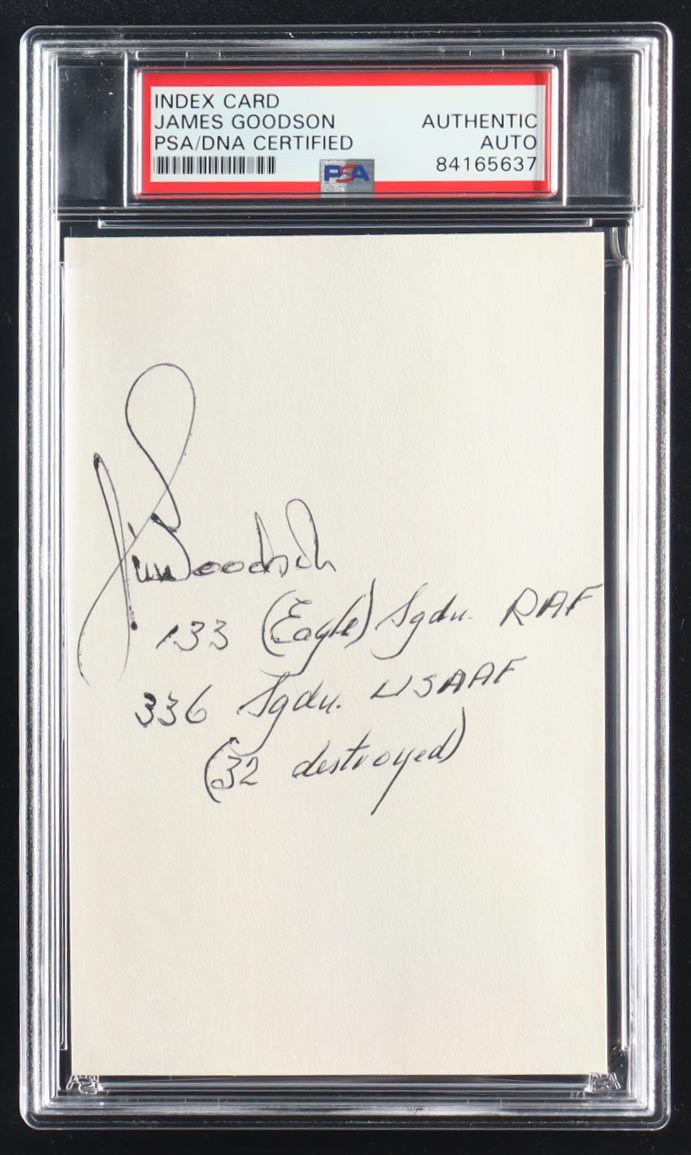 INDEX CARD
JAMES GOODSON AUTHENTIC
PSA/DNA CERTIFIED AUTO
84165637
PSA
Jim Goodson
133 (Eagle) Sqdn. RAF
336 Sqdn. USAAF
(32 destroyed)